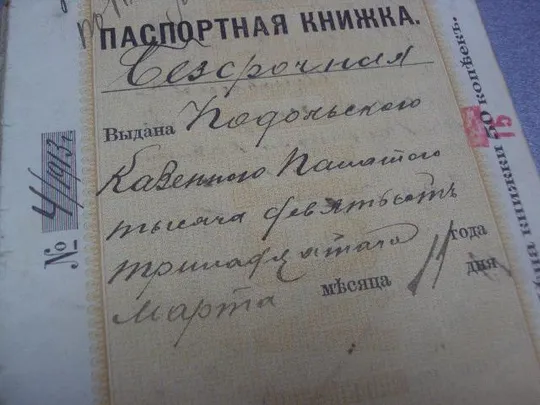 ПАСПОРТНАЯ КНИЖКА.
Безсрочная
Выдана Подольского
Казенною Палатою
тысяча девятьсотъ
тринадцатаго года
Марта мѣсяца 11 дня
№ 4/1913 г.
книжки 50 копѣекъ".
15